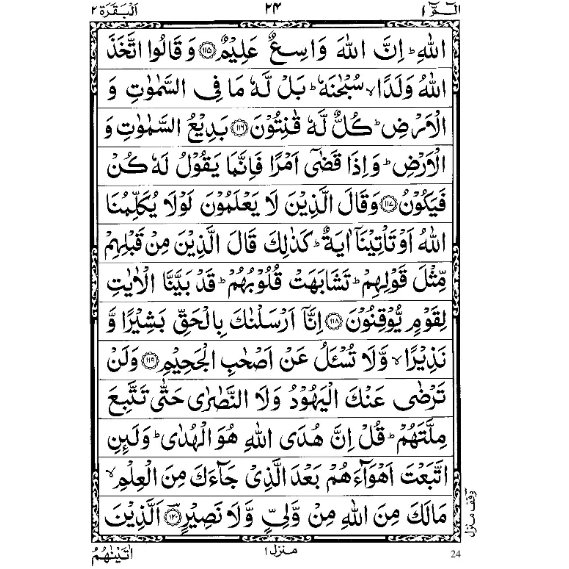 الٓمّٓ ۱ ۲۴ اَلْبَقَرَة ۲
اللّٰهِ ؕ اِنَّ اللّٰهَ وَاسِعٌ عَلِیْمٌ ﴿۱۱۵﴾ وَ قَالُوا اتَّخَذَ
اللّٰهُ وَلَدًا ۙ سُبْحٰنَهٗ ؕ بَلْ لَّهٗ مَا فِی السَّمٰوٰتِ وَ
الْاَرْضِ ؕ كُلٌّ لَّهٗ قٰنِتُوْنَ ﴿۱۱۶﴾ بَدِیْعُ السَّمٰوٰتِ وَ
الْاَرْضِ ؕ وَ اِذَا قَضٰۤی اَمْرًا فَاِنَّمَا یَقُوْلُ لَهٗ كُنْ
فَیَكُوْنُ ﴿۱۱۷﴾ وَ قَالَ الَّذِیْنَ لَا یَعْلَمُوْنَ لَوْلَا یُكَلِّمُنَا
اللّٰهُ اَوْ تَاْتِیْنَاۤ اٰیَةٌ ؕ كَذٰلِكَ قَالَ الَّذِیْنَ مِنْ قَبْلِهِمْ
مِّثْلَ قَوْلِهِمْ ؕ تَشَابَهَتْ قُلُوْبُهُمْ ؕ قَدْ بَیَّنَّا الْاٰیٰتِ
لِقَوْمٍ یُّوْقِنُوْنَ ﴿۱۱۸﴾ اِنَّاۤ اَرْسَلْنٰكَ بِالْحَقِّ بَشِیْرًا وَّ
نَذِیْرًا ۙ وَّ لَا تُسْـَٔلُ عَنْ اَصْحٰبِ الْجَحِیْمِ ﴿۱۱۹﴾ وَ لَنْ
تَرْضٰی عَنْكَ الْیَهُوْدُ وَ لَا النَّصٰرٰی حَتّٰی تَتَّبِعَ
مِلَّتَهُمْ ؕ قُلْ اِنَّ هُدَی اللّٰهِ هُوَ الْهُدٰی ؕ وَ لَىِٕنِ
اتَّبَعْتَ اَهْوَآءَهُمْ بَعْدَ الَّذِیْ جَآءَكَ مِنَ الْعِلْمِ ۙ
مَا لَكَ مِنَ اللّٰهِ مِنْ وَّلِیٍّ وَّ لَا نَصِیْرٍ ﴿۱۲۰﴾ اَلَّذِیْنَ
وقف منزل
اٰتَیْنٰهُمُ منزل ۱ 24